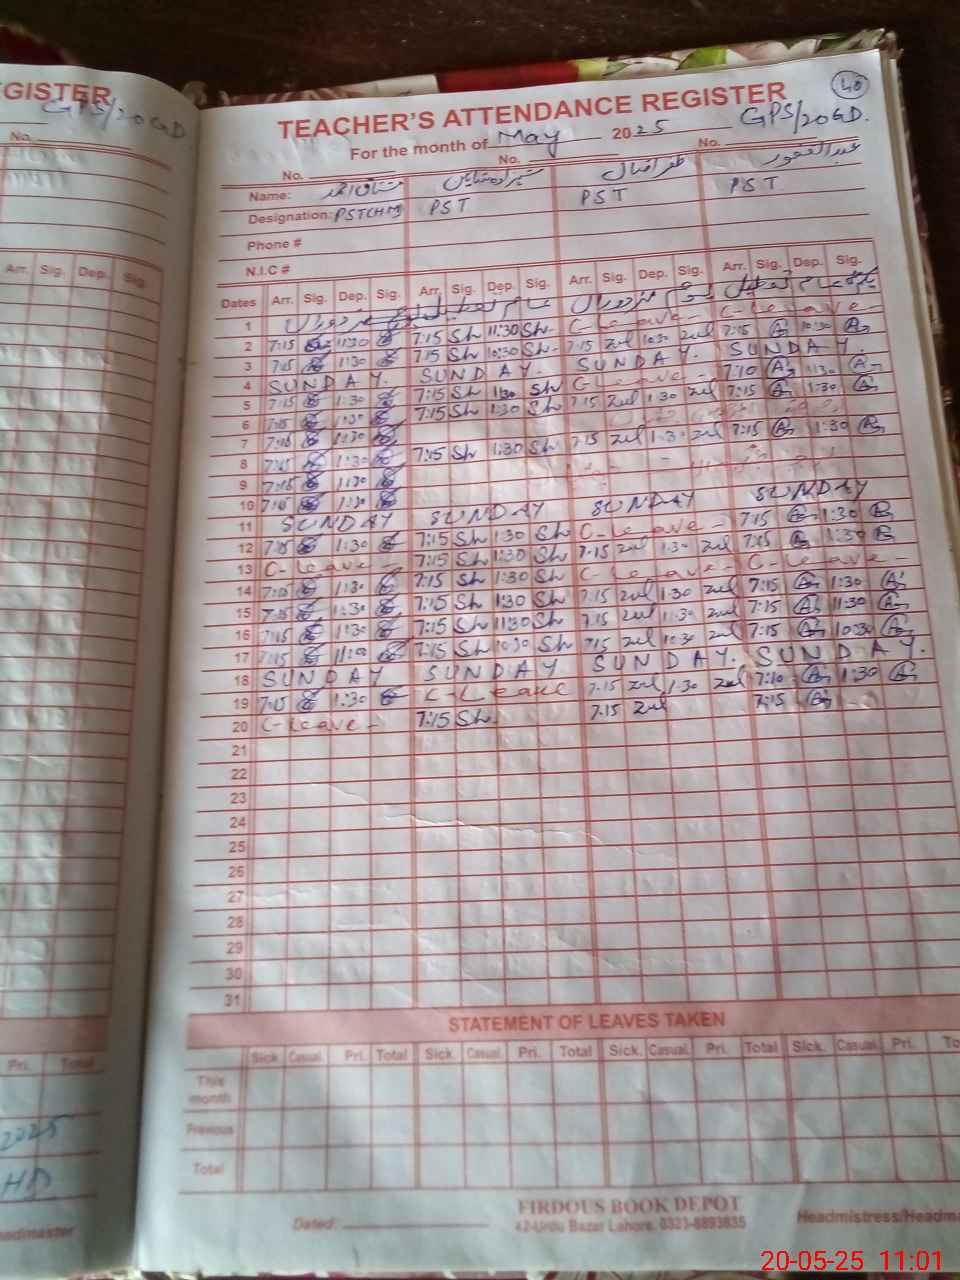 GISTER
GPS/20GD
No.
40
TEACHER'S ATTENDANCE REGISTER
GPS/20GD.
For the month of May 2025
No. No. No.
Name: مشتاق احمد ظفر اقبال عبدالغفور
Designation: PST(HM) PST PST PST
Phone #
N.I.C #
Arr. Sig. Dep. Sig.
Dates Arr. Sig. Dep. Sig. Arr. Sig. Dep. Sig. Arr. Sig. Dep. Sig. Arr. Sig. Dep. Sig.
1
2 7:15 11:30 7:15 Sh 11:30 Sh C-Leave C-Leave
3 7:15 11:30 7:15 Sh 10:30 Sh 7:15 zul 10:30 zul 7:15 10:30
4 SUNDAY. SUNDAY. SUNDAY. SUNDAY.
5 7:15 1:30 7:15 Sh 1:30 Sh C-Leave 7:10 1:30
6 7:15 1:30 7:15 Sh 1:30 Sh 7:15 zul 1:30 zul 7:15 1:30
7 7:15 1:30
8 7:15 1:30 7:15 Sh 1:30 Sh 7:15 zul 1:30 zul 7:15 1:30
9 7:15 1:30
10 7:15 1:30
11 SUNDAY SUNDAY SUNDAY SUNDAY
12 7:15 1:30 7:15 Sh 1:30 Sh C-Leave 7:15 1:30
13 C-Leave 7:15 Sh 1:30 Sh 7:15 zul 1:30 zul 7:15 1:30
14 7:15 1:30 7:15 Sh 1:30 Sh C-Leave C-Leave
15 7:15 1:30 7:15 Sh 1:30 Sh 7:15 zul 1:30 zul 7:15 1:30
16 7:15 1:30 7:15 Sh 11:30 Sh 7:15 zul 11:30 zul 7:15 11:30
17 7:15 11:00 7:15 Sh 10:30 Sh 7:15 zul 10:30 zul 7:15 10:30
18 SUNDAY SUNDAY SUNDAY. SUNDAY.
19 7:15 1:30 C-Leave 7:15 zul 1:30 zul 7:10 1:30
20 C-Leave 7:15 Sh 7:15 zul 7:15
21
22
23
24
25
26
27
28
29
30
31
STATEMENT OF LEAVES TAKEN
Pri. Total
Sick Casual Pri. Total Sick. Casual Pri. Total Sick. Casual Pri. Total Sick. Casual Pri. To
This month
Previous
Total
2025
HD
admaster
Dated:
FIRDOUS BOOK DEPOT
42-Urdu Bazar Lahore. 0321-8893835
Headmistress/Headma
20-05-25 11:01